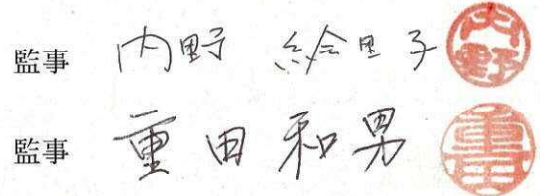 監事 内野 絵里子 内野
監事 重田和男 重田